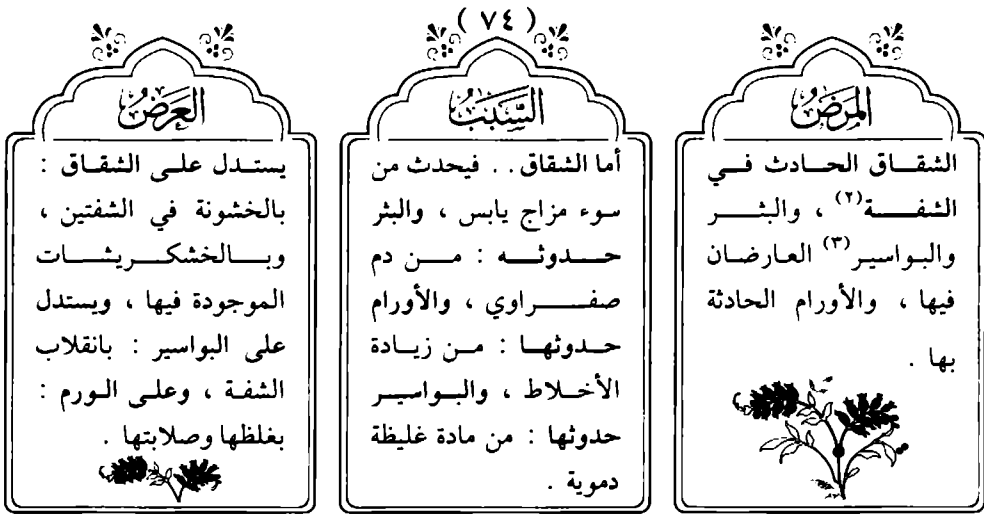 ( ٧٤ )
المَرَضُ
الشقاق الحادث في
الشفة(٢) ، والبثر
والبواسير(٣) العارضان
فيها ، والأورام الحادثة
بها .
السَّبَبُ
أما الشقاق . . فيحدث من
سوء مزاج يابس ، والبثر
حدوثه : من دم
صفراوي ، والأورام
حدوثها : من زيادة
الأخلاط ، والبواسير
حدوثها : من مادة غليظة
دموية .
العَرَضُ
يستدل على الشقاق :
بالخشونة في الشفتين ،
وبالخشكريشات
الموجودة فيها ، ويستدل
على البواسير : بانقلاب
الشفة ، وعلى الورم :
بغلظها وصلابتها .